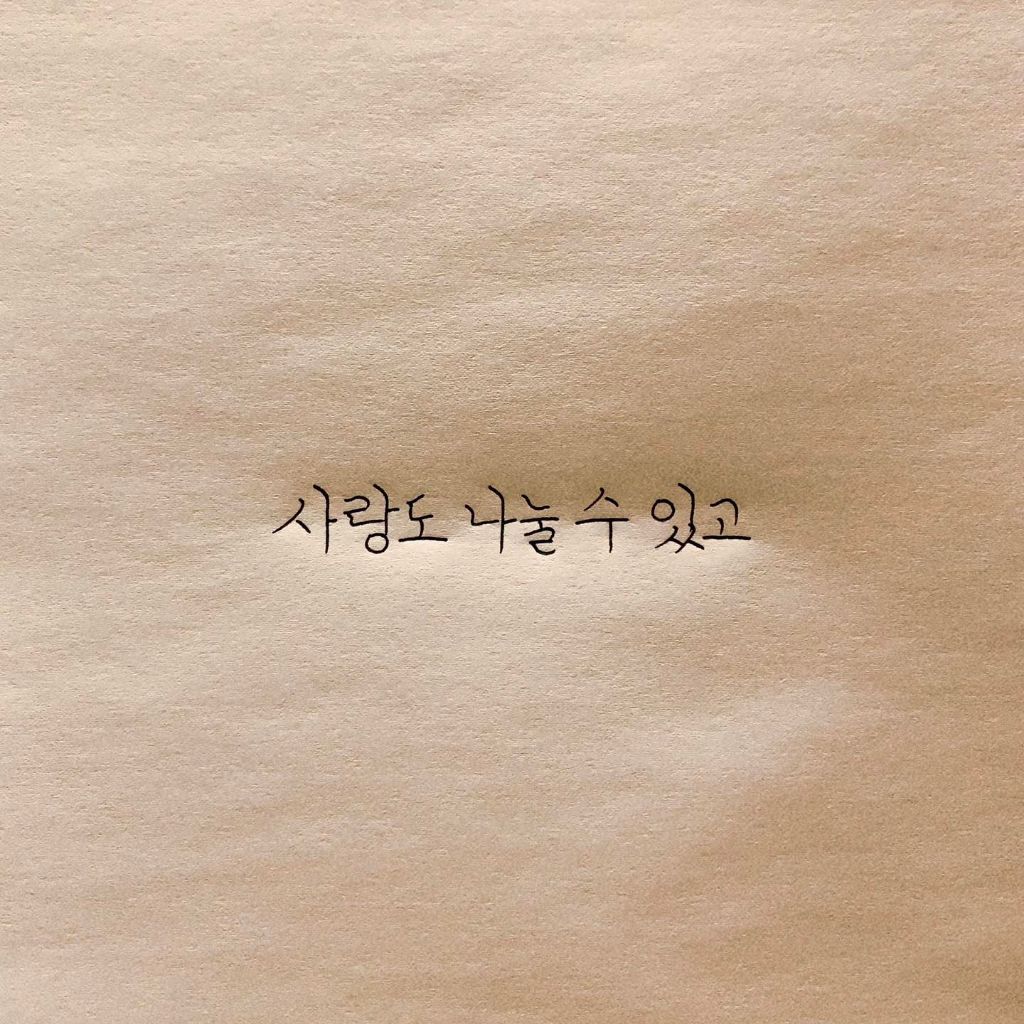 사랑도 나눌 수 있고